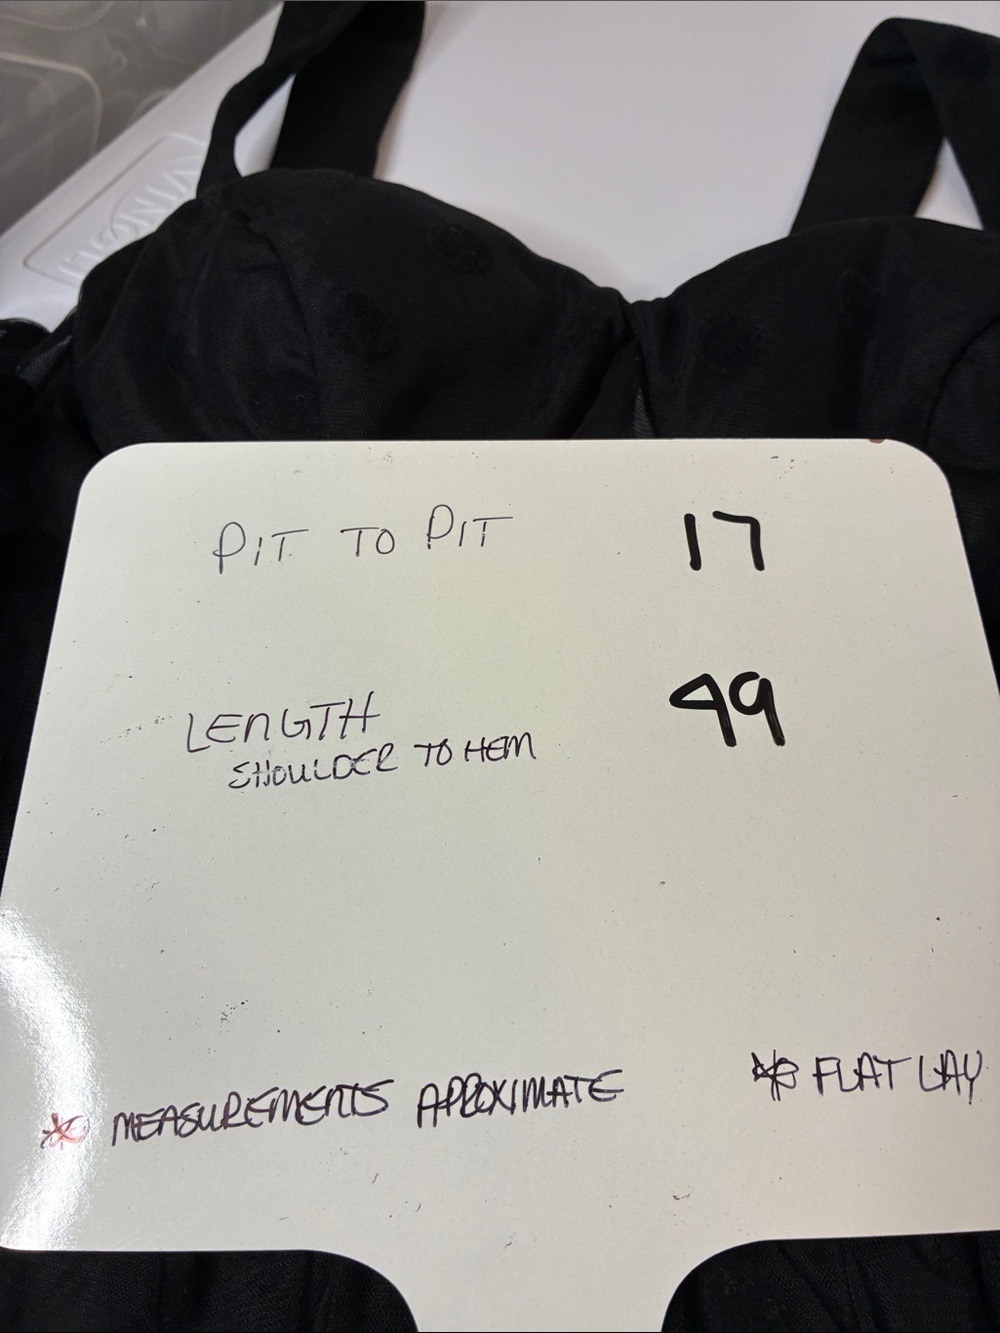 PIT TO PIT 17
LENGTH 49
SHOULDER TO HEM
* MEASUREMENTS APPROXIMATE * FLAT LAY